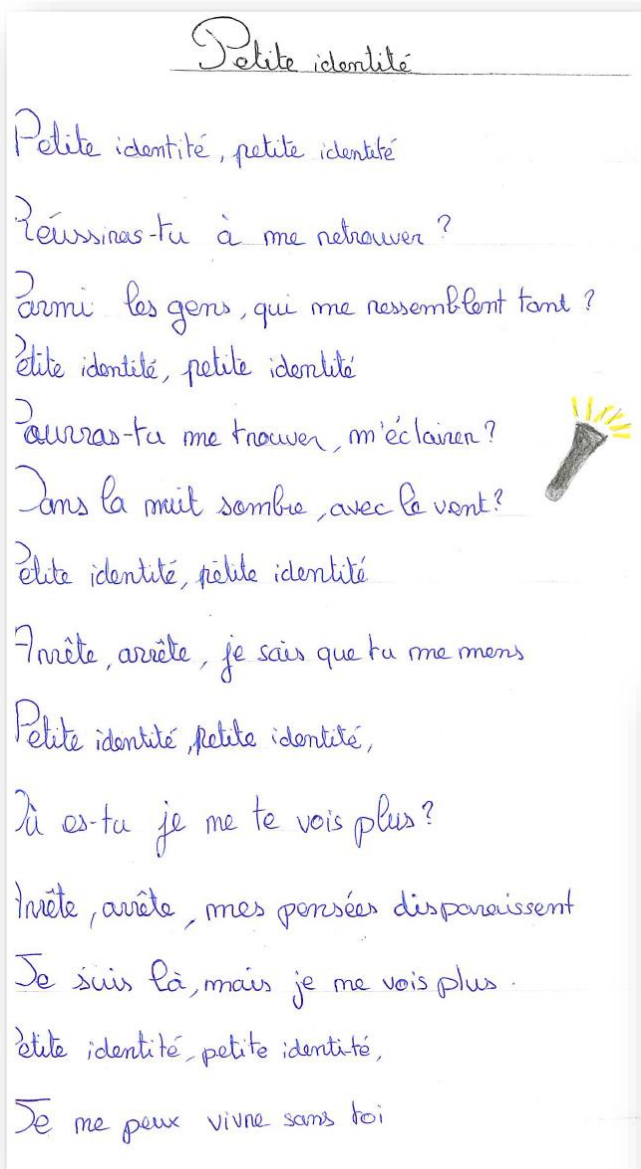 Petite identité
Petite identité, petite identité
Réussiras-tu à me retrouver ?
Parmi les gens, qui me ressemblent tant ?
Petite identité, petite identité
Pourras-tu me trouver, m'éclairer ?
Dans la nuit sombre, avec le vent ?
Petite identité, petite identité
Arrête, arrête, je sais que tu me mens
Petite identité, petite identité,
Où es-tu je ne te vois plus ?
Arrête, arrête, mes pensées disparaissent
Je suis là, mais je ne vois plus.
Petite identité, petite identité,
Je ne peux vivre sans toi